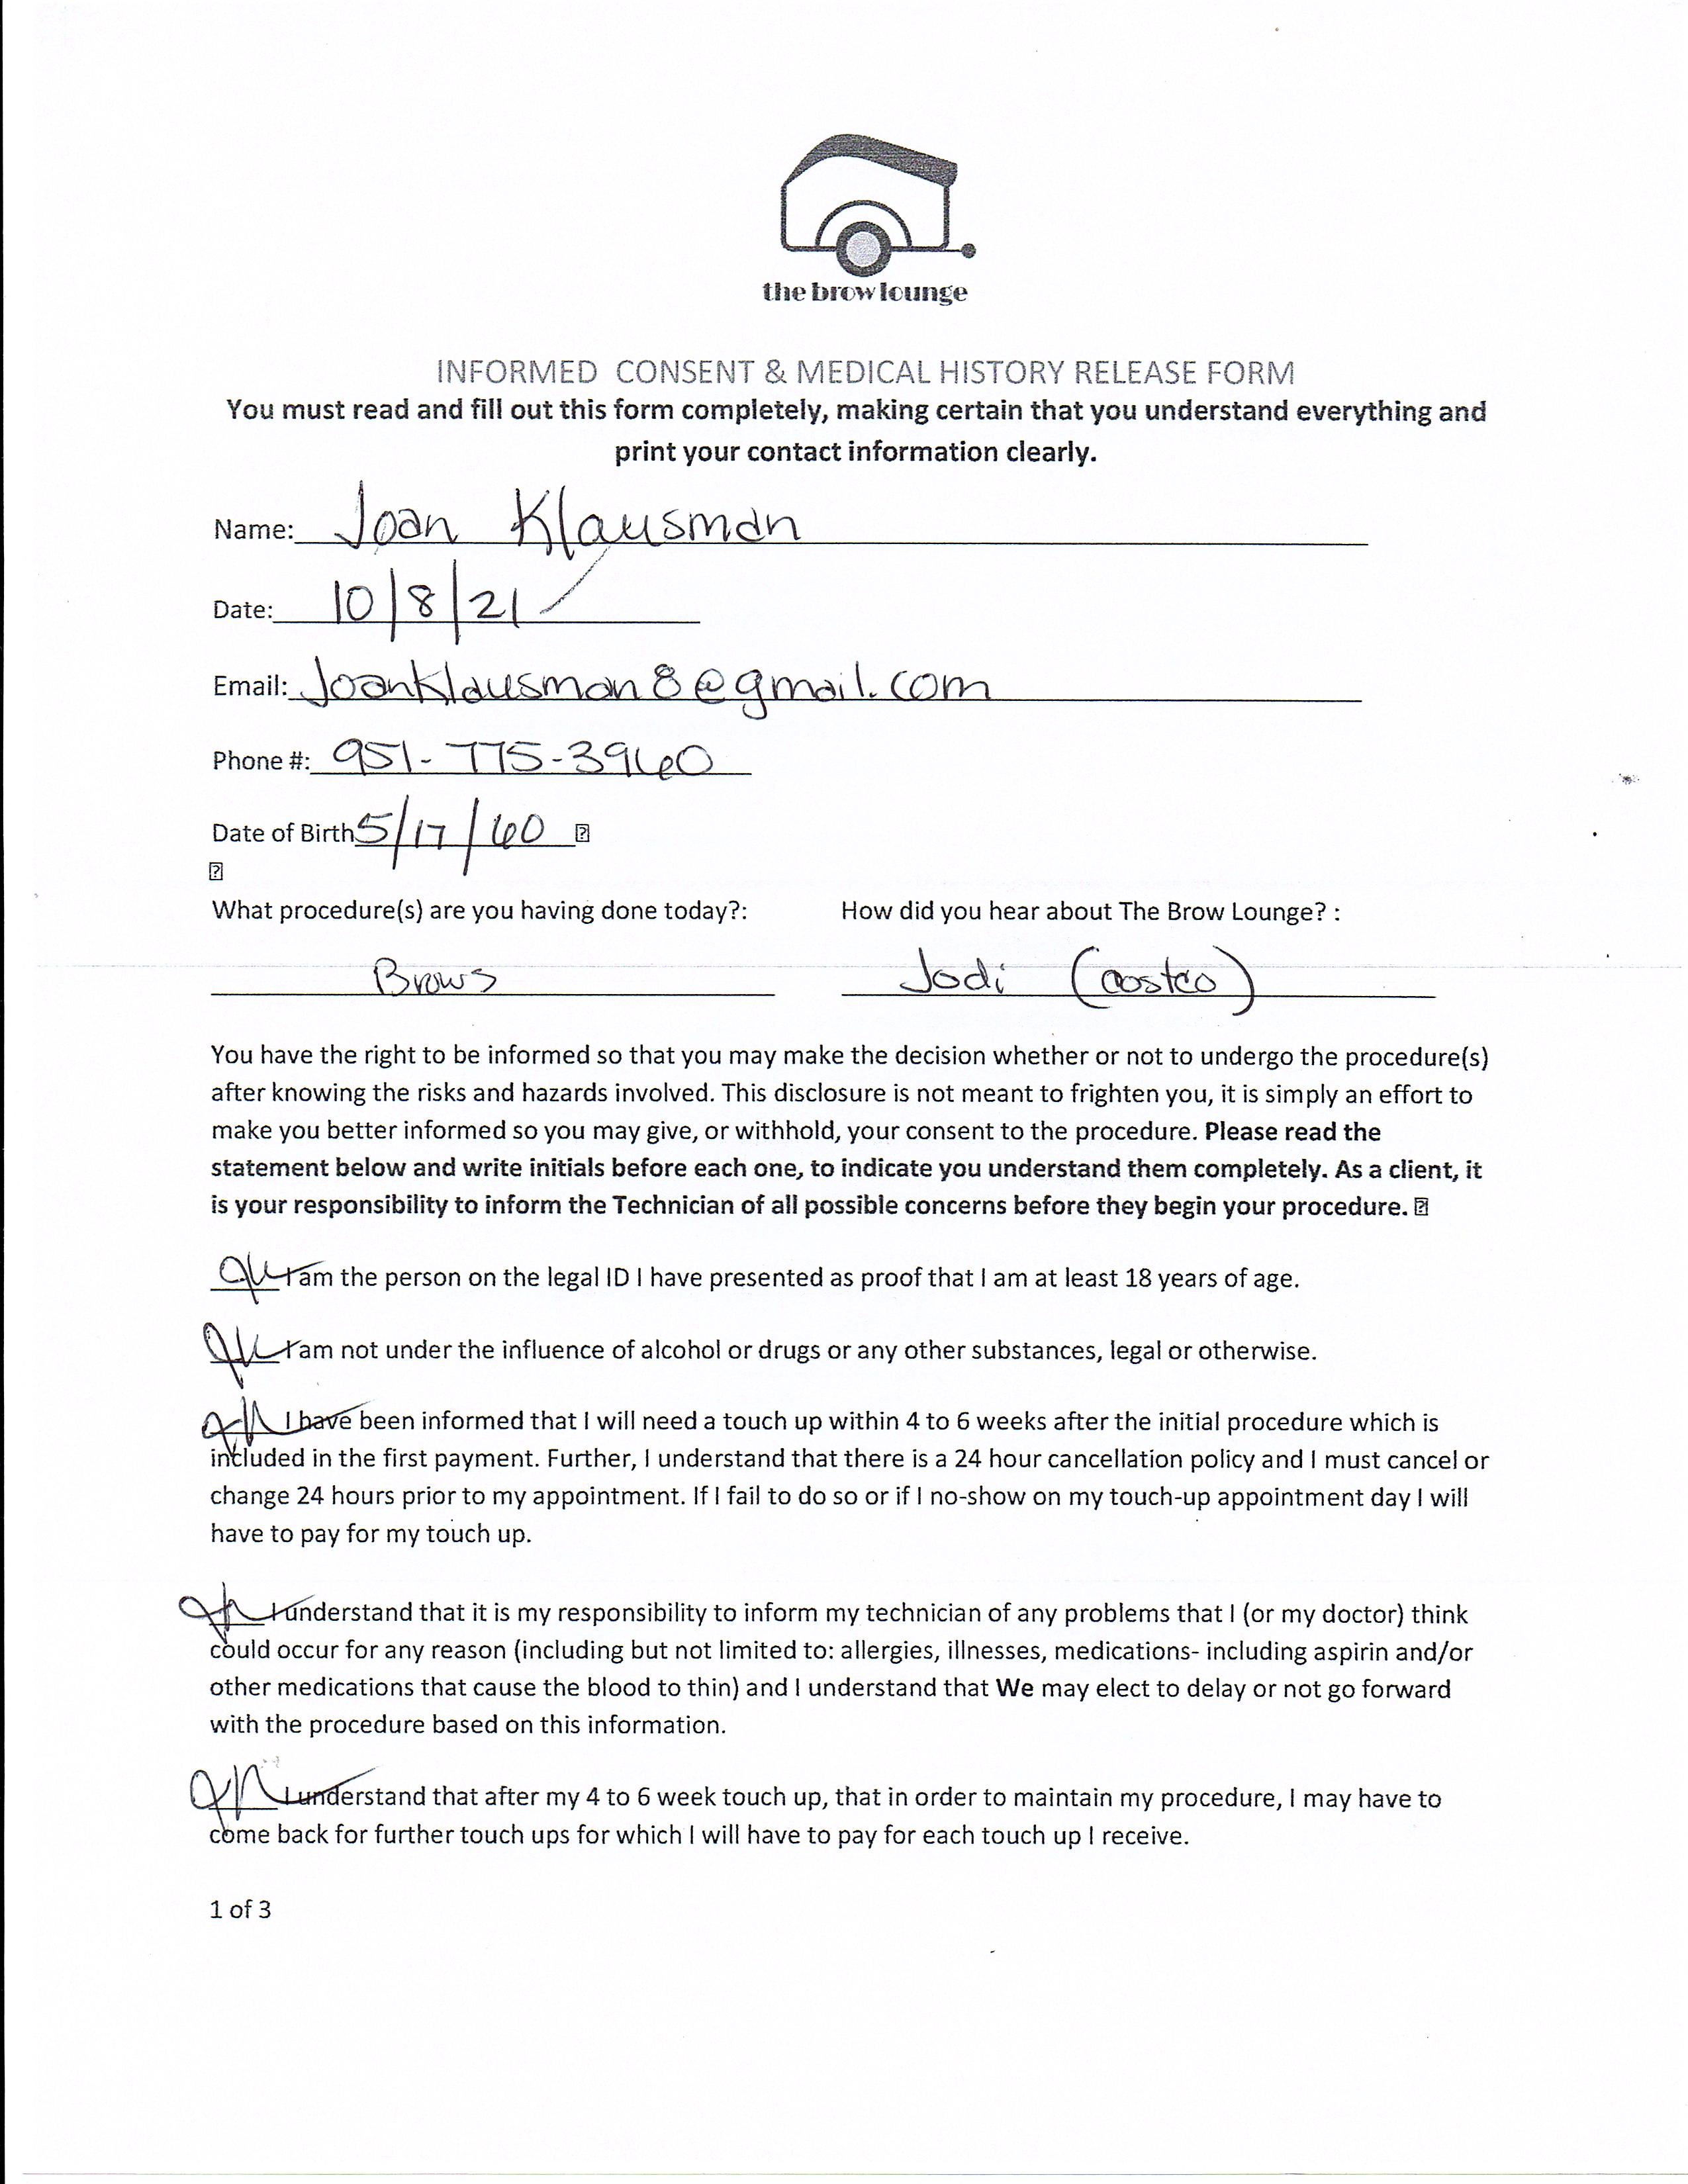 the brow lounge
INFORMED CONSENT & MEDICAL HISTORY RELEASE FORM
You must read and fill out this form completely, making certain that you understand everything and
print your contact information clearly.
Name: Joan Klausman
Date: 10/8/21
Email: Joanklausman8@gmail.com
Phone #: 951-775-3960
Date of Birth 5/17/60
What procedure(s) are you having done today?: How did you hear about The Brow Lounge? :
Brows Jodi (Costco)
You have the right to be informed so that you may make the decision whether or not to undergo the procedure(s)
after knowing the risks and hazards involved. This disclosure is not meant to frighten you, it is simply an effort to
make you better informed so you may give, or withhold, your consent to the procedure. Please read the
statement below and write initials before each one, to indicate you understand them completely. As a client, it
is your responsibility to inform the Technician of all possible concerns before they begin your procedure.
JK I am the person on the legal ID I have presented as proof that I am at least 18 years of age.
JK I am not under the influence of alcohol or drugs or any other substances, legal or otherwise.
JK I have been informed that I will need a touch up within 4 to 6 weeks after the initial procedure which is
included in the first payment. Further, I understand that there is a 24 hour cancellation policy and I must cancel or
change 24 hours prior to my appointment. If I fail to do so or if I no-show on my touch-up appointment day I will
have to pay for my touch up.
JK I understand that it is my responsibility to inform my technician of any problems that I (or my doctor) think
could occur for any reason (including but not limited to: allergies, illnesses, medications- including aspirin and/or
other medications that cause the blood to thin) and I understand that We may elect to delay or not go forward
with the procedure based on this information.
JK I understand that after my 4 to 6 week touch up, that in order to maintain my procedure, I may have to
come back for further touch ups for which I will have to pay for each touch up I receive.
1 of 3